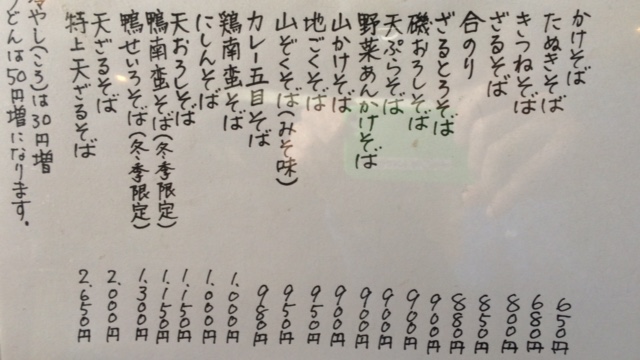 かけそば 650円
たぬきそば 680円
きつねそば 800円
ざるそば 850円
合のり 880円
ざるとろそば 900円
磯おろしそば 900円
天ぷらそば 900円
野菜あんかけそば 900円
山かけそば 900円
地ごくそば 950円
山ぞくそば(みそ味) 950円
カレー五目そば 980円
鶏南蛮そば 1.000円
にしんそば 1.000円
天おろしそば 1.150円
鴨南蛮そば(冬季限定) 1.150円
鴨せいろそば(冬季限定) 1.300円
天ざるそば 2.000円
特上天ざるそば 2.650円
やし(ころ)は30円増
どんは50円増になります。